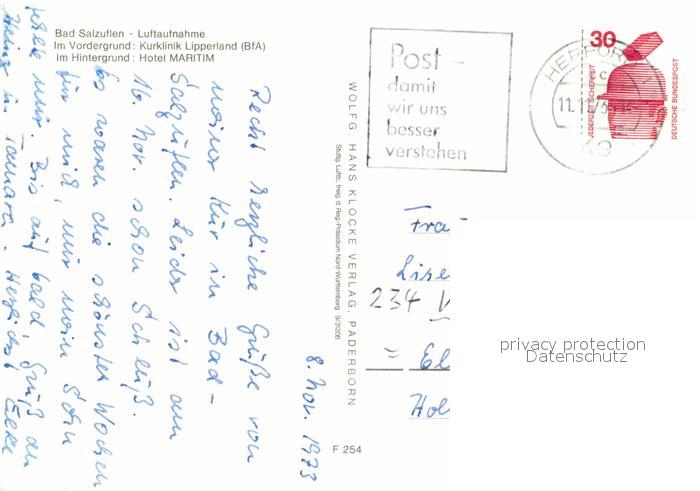 Bad Salzuflen - Luftaufnahme
Im Vordergrund: Kurklinik Lipperland (BfA)
im Hintergrund: Hotel MARITIM
8. Nov. 1973
Recht herzliche Grüße von
meiner Kur in Bad-
Salzuflen. Leider ist am
16. Nov. schon Schluß.
Es waren die schönsten Wochen
für mich, nur mein Sohn
fehlte mir. Bis auf bald Gruß an
Heinz u. Tamara. Herzlichst Elke
WOLFG. HANS KLOCKE VERLAG, PADERBORN
Stuttg. Luftb. freig. d. Reg.-Präsidium Nord-Württemberg 9/31206
F 254
Post -
damit
wir uns
besser
verstehen
HERFORD
c
11.11.73
49
30
JEDERZEIT SICHERHEIT
DEUTSCHE BUNDESPOST
Fra
Lise
234 V
= El
Hol
privacy protection
Datenschutz